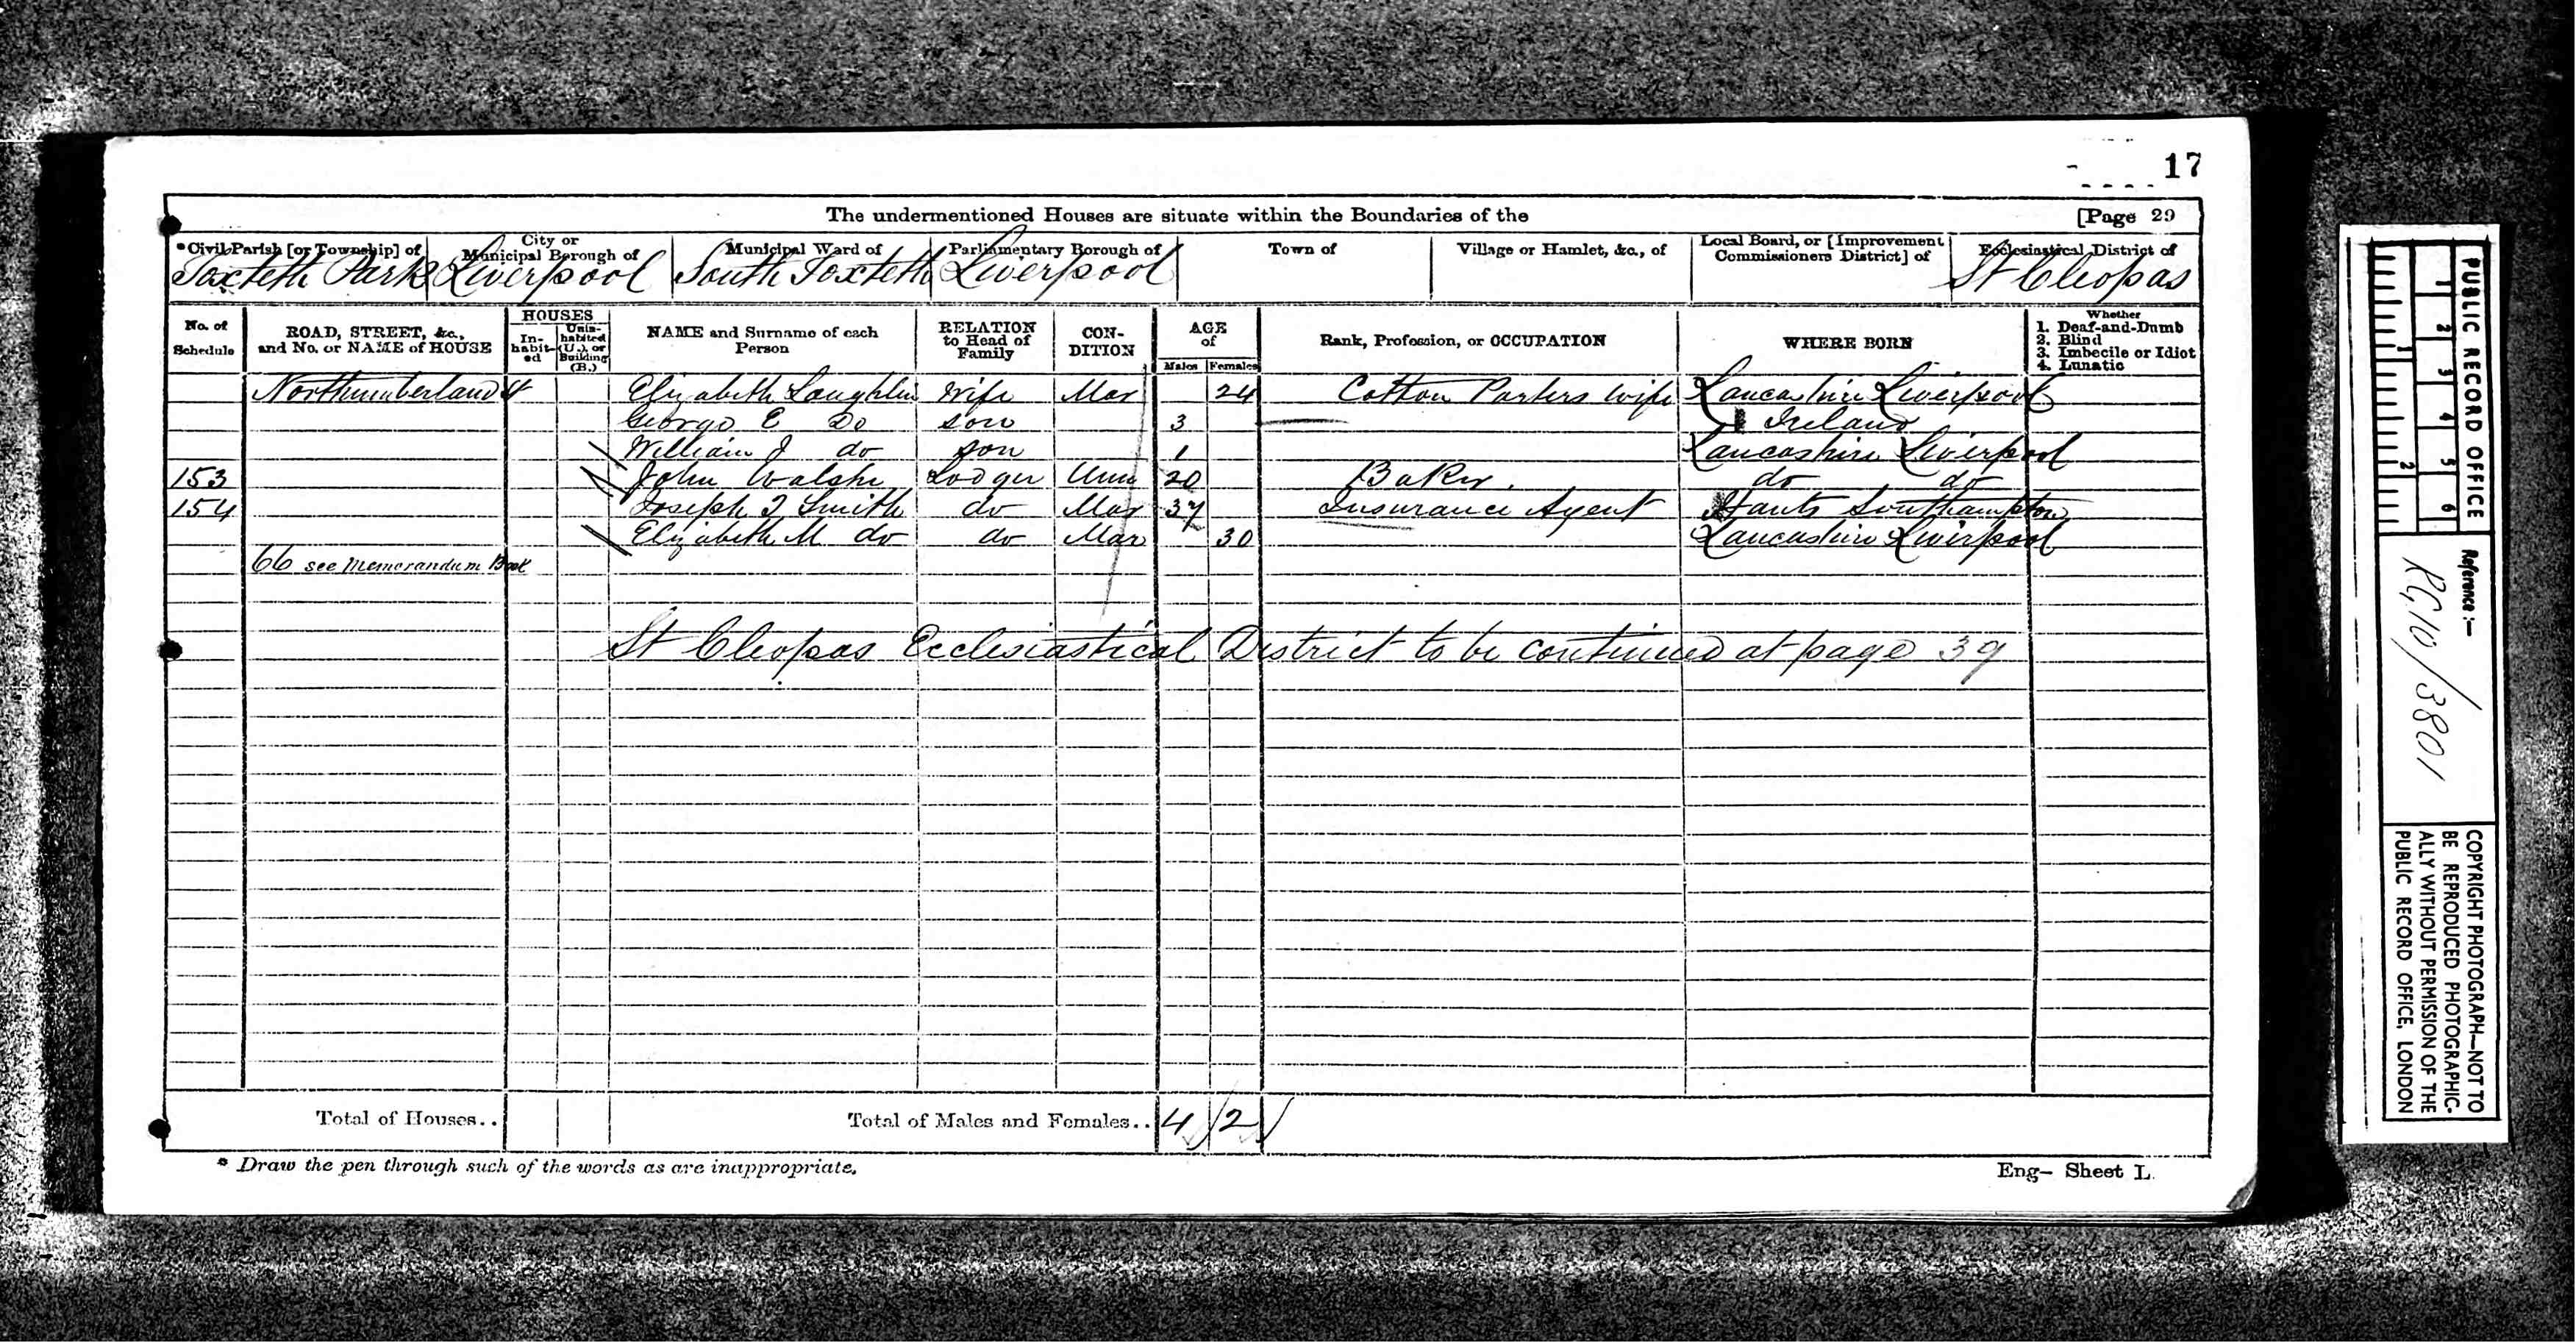 17
The undermentioned Houses are situate within the Boundaries of the [Page 29
*Civil Parish [or Township] of City or Municipal Borough of Municipal Ward of Parliamentary Borough of Town of Village or Hamlet, &c., of Local Board, or [Improvement Commissioners District] of Ecclesiastical District of
Toxteth Park Liverpool South Toxteth Liverpool St Cleopas
No. of Schedule ROAD, STREET, &c., and No. or NAME of HOUSE HOUSES In-habit-ed Unin-habited (U.), or Building (B.) NAME and Surname of each Person RELATION to Head of Family CON-DITION AGE of Males Females Rank, Profession, or OCCUPATION WHERE BORN Whether
1. Deaf-and-Dumb
2. Blind
3. Imbecile or Idiot
4. Lunatic
Northumberland Elizabeth Laughlin Wife Mar 24 Cotton Porters wife Lancashire Liverpool
George E Do son 3 Ireland
William J do son 1 Lancashire Liverpool
153 John Walsh Lodger Unm 20 Baker do do
154 Joseph T Smith do Mar 37 Insurance Agent Hants Southampton
Elizabeth M do do Mar 30 Lancashire Liverpool
66 see Memorandum Book
St Cleopas Ecclesiastical District to be continued at page 39
Total of Houses.. Total of Males and Females.. 4 2
* Draw the pen through such of the words as are inappropriate.
Eng- Sheet L.
PUBLIC RECORD OFFICE
1 2 3 4 5 6
1 2
Reference:-
RG10/3801
COPYRIGHT PHOTOGRAPH-NOT TO
BE REPRODUCED PHOTOGRAPHIC-
ALLY WITHOUT PERMISSION OF THE
PUBLIC RECORD OFFICE, LONDON